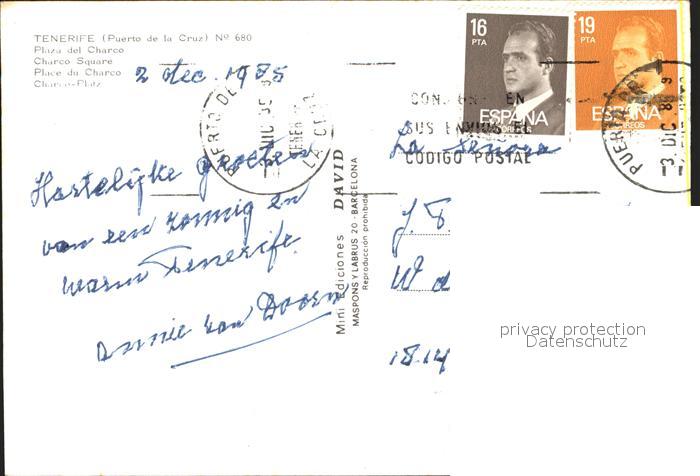 TENERIFE (Puerto de la Cruz) Nº 680
Plaza del Charco
Charco Square
Place du Charco
Charco-Platz
2 dec. 1985
16
PTA
ESPAÑA
CORREOS
19
PTA
ESPAÑA
CORREOS
PUERTO DE LA CRUZ
DIC
TENERIFE
EN
SUS
CODIGO POSTAL
PUERTO DE
-3. DIC 85
La Señora
Hartelijke groeten
van een zonnig en
warm Tenerife.
Annie van Doorn
Mini Ediciones DAVID
MASPONS Y LABRUS 20 - BARCELONA
Reproducción prohibida
J. F.
W d
1814
privacy protection
Datenschutz